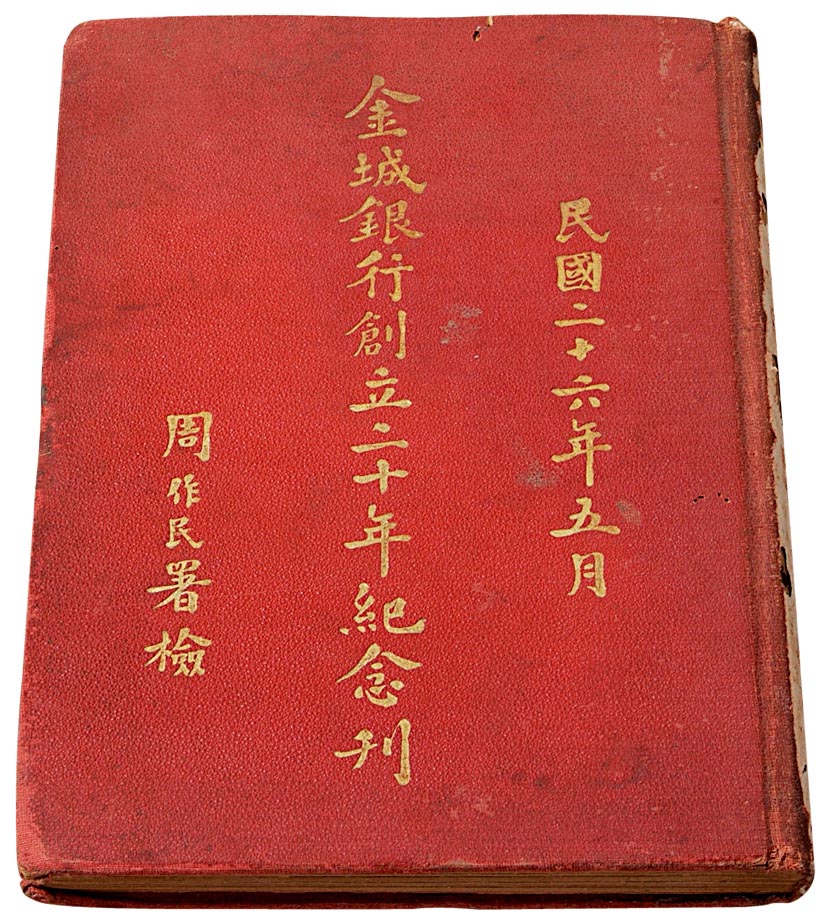 民國二十六年五月
金城銀行創立二十年紀念刊
周作民署檢